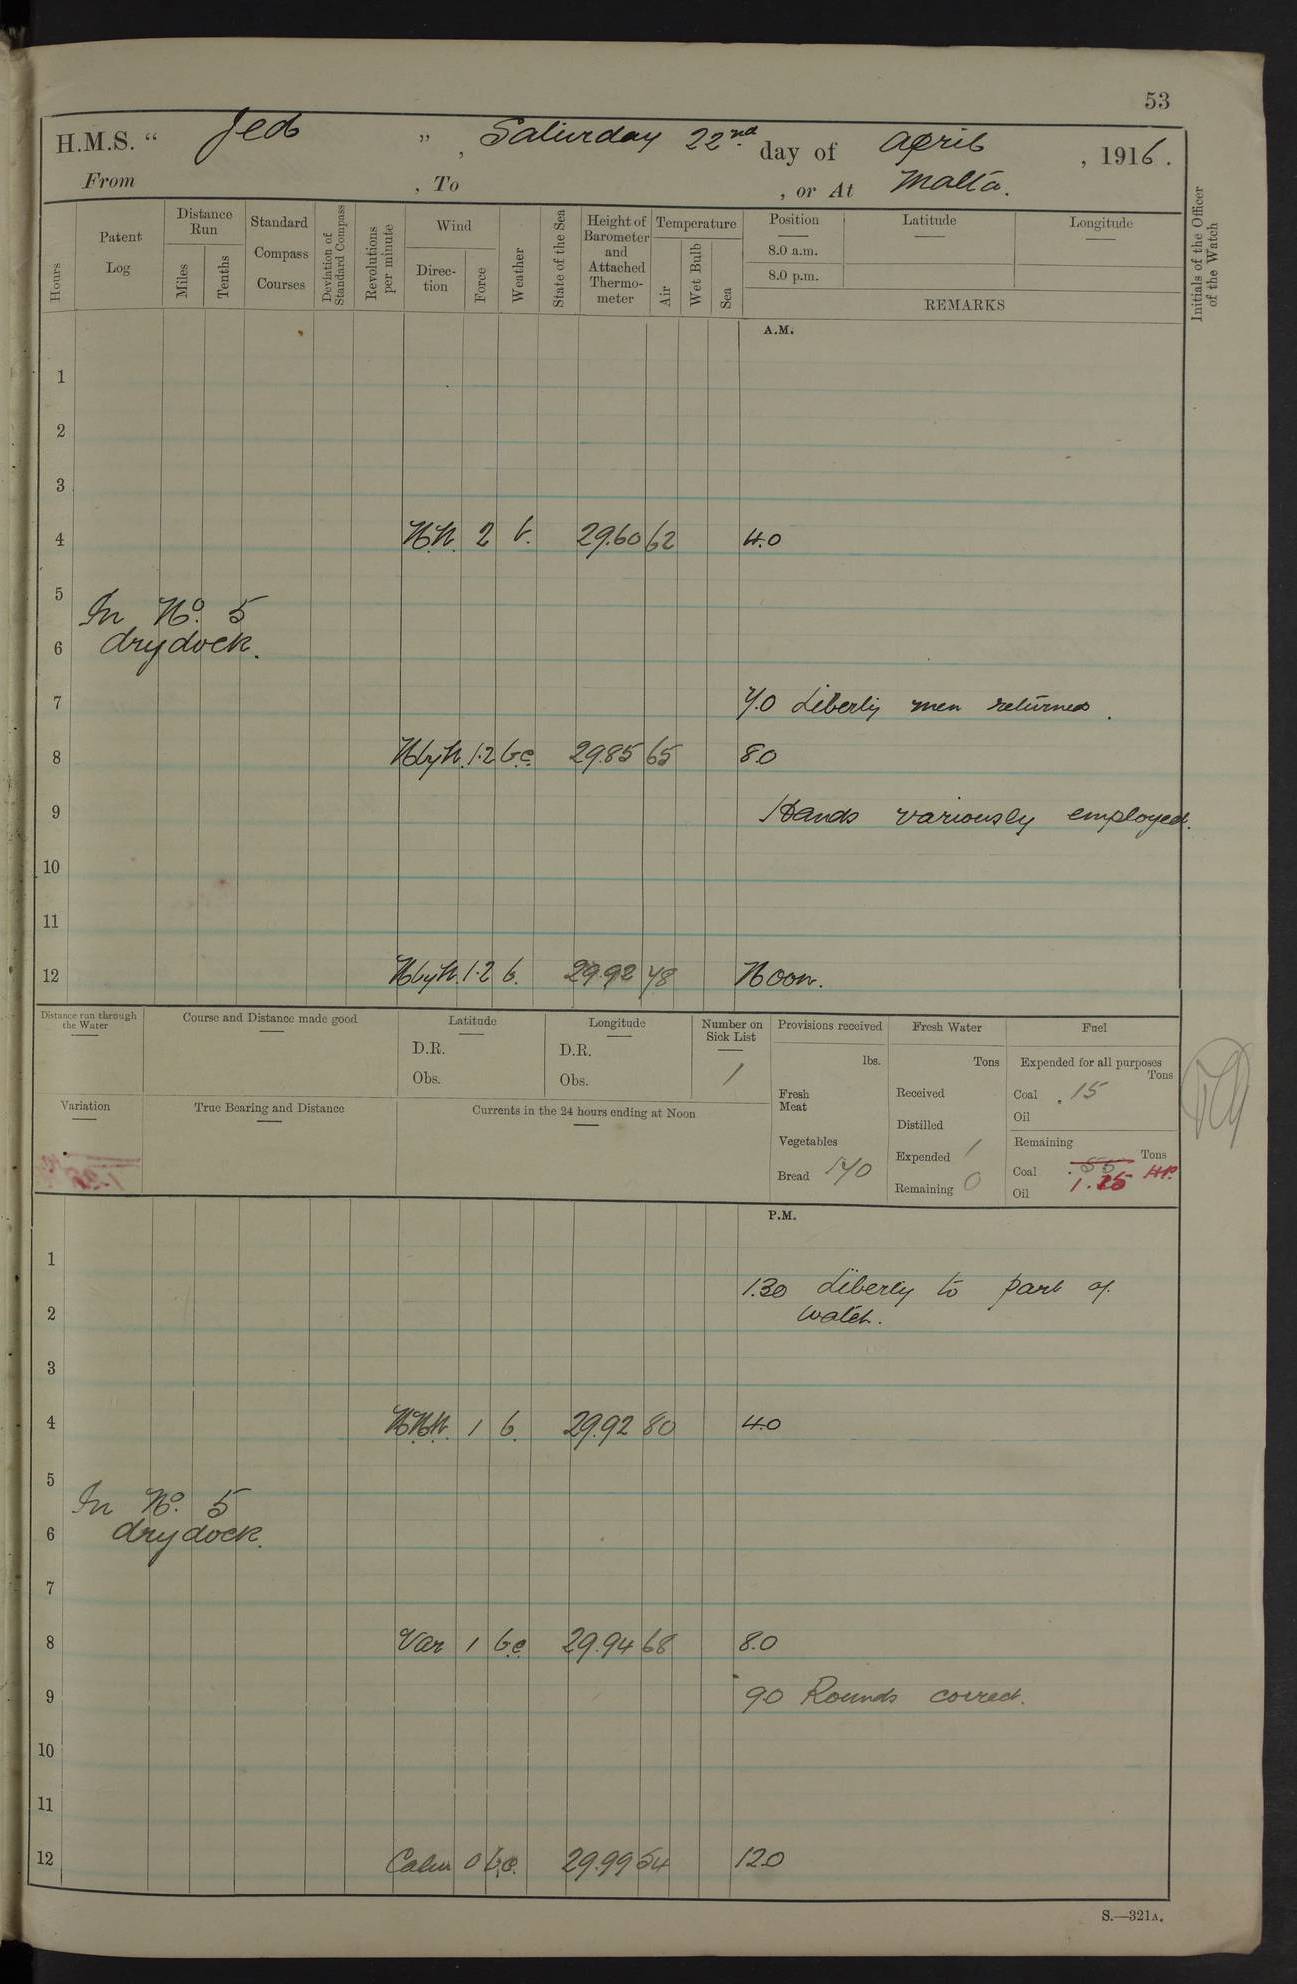 53
H.M.S. " Jed ", Saturday 22nd. day of April, 1916.
From , To , or At Malta.
Hours
Patent Log
Distance Run
Miles
Tenths
Standard Compass Courses
Deviation of Standard Compass
Revolutions per minute
Wind
Direc-tion
Force
Weather
State of the Sea
Height of Barometer and Attached Thermo-meter
Temperature
Air
Wet Bulb
Sea
Position
8.0 a.m.
8.0 p.m.
Latitude
Longitude
REMARKS
Initials of the Officer of the Watch
A.M.
1
2
3
4 2 b. 29.60 62 4.0
5 In No. 5
6 drydock.
7 7.0 Liberty men returned.
8 1.2 b.c. 29.85 65 8.0
9 Hands variously employed.
10
11
12 1.2 b. 29.92 78 Noon.
Distance run through the Water
Course and Distance made good
Latitude
D.R.
Obs.
Longitude
D.R.
Obs.
Number on Sick List
1
Provisions received
lbs.
Fresh Meat
Vegetables
Bread 170
Fresh Water
Tons
Received
Distilled
Expended 1
Remaining 0
Fuel
Expended for all purposes
Tons
Coal .15
Oil
Remaining
Tons
Coal
1.25
Oil
Variation
True Bearing and Distance
Currents in the 24 hours ending at Noon
P.M.
1
1.30 Liberty to part of
2 watch.
3
4 1 b. 29.92 80 4.0
5 In No. 5
6 drydock.
7
8 Var 1 b.c. 29.94 68 8.0
9 9.0 Rounds correct.
10
11
12 Calm 0 b.c. 29.99 12.0
S.—321A.